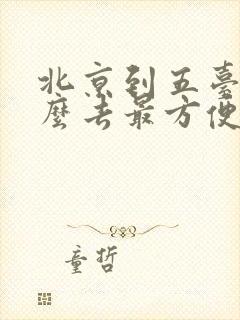 北京到五臺
麼去最方便
童哲